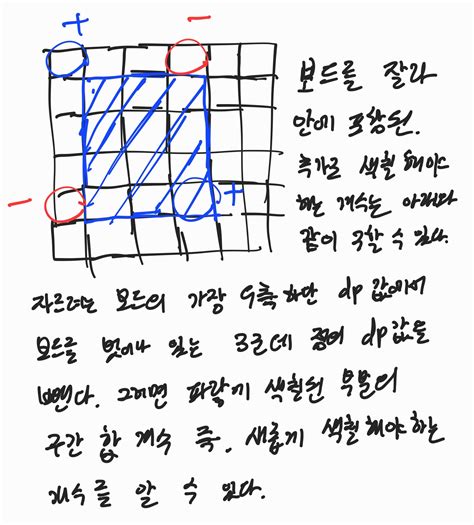 + -
보드를 잘라
안에 포함된.
추가로 색칠해야
하는 개수는 아래와
같이 구할 수 있다.
- +
자르려는 보드의 가장 우측하단 dp 값에서
보드를 벗어나 있는 3군데 점의 dp값을
뺀다. 그러면 파랗게 색칠된 부분의
구간 합 개수 즉, 새롭게 색칠해야하는
개수를 알 수 있다.